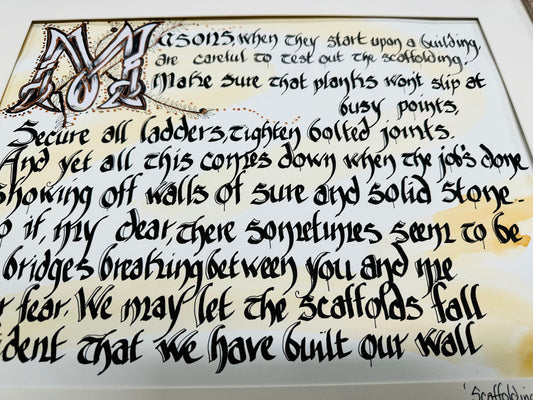 Masons, when they start upon a building,
are careful to test out the scaffolding.
Make sure that planks wont slip at
busy points,
Secure all ladders, tighten bolted joints.
And yet all this comes down when the job's done
showing off walls of sure and solid stone..
if, my dear there sometimes seem to be
bridges breaking between you and me
fear. We may let the scaffolds fall
that we have built our wall
'Scaffolding